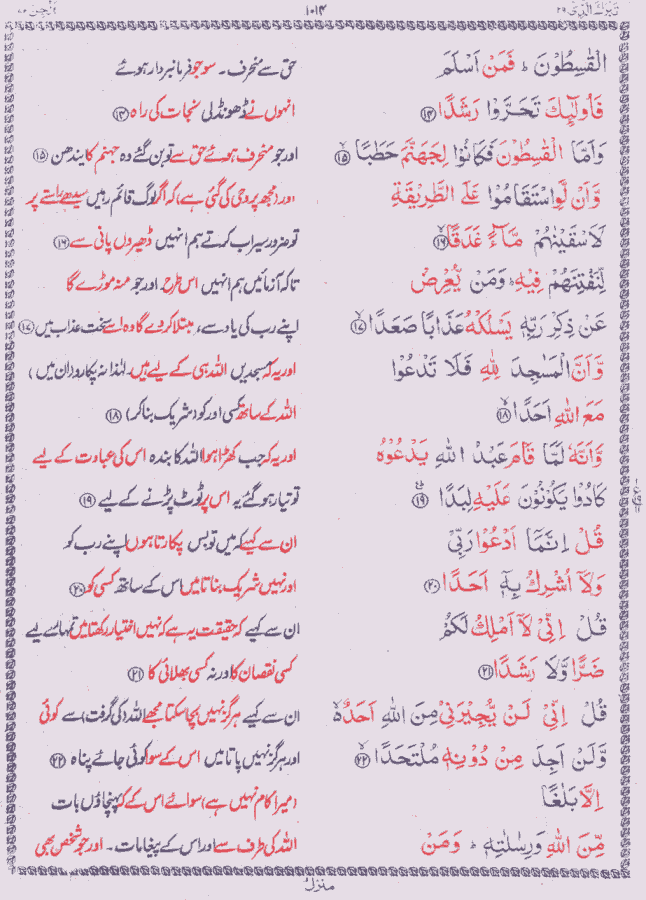 تبٰرك الذی ۲۹ ۱۰۱۴ الجن ۷۲
الْقٰسِطُوْنَ ؕ فَمَنْ اَسْلَمَ حق سے منحرف۔ سو جو فرمانبردار ہوئے
فَاُولٰٓئِكَ تَحَرَّوْا رَشَدًا ۝۱۴ انہوں نے ڈھونڈلی نجات کی راہ ۝۱۴
وَاَمَّا الْقٰسِطُوْنَ فَكَانُوْا لِجَهَنَّمَ حَطَبًا ۝۱۵ اور جو منحرف ہوئے حق سے تو بن گئے وہ جہنم کا ایندھن ۝۱۵
وَّاَنْ لَّوِ اسْتَقَامُوْا عَلَى الطَّرِيْقَةِ اور (مجھ پر وحی کی گئی ہے) کہ اگر لوگ قائم رہیں سیدھے راستے پر
لَاَسْقَيْنٰهُمْ مَّآءً غَدَقًا ۝۱۶ تو ضرور سیراب کرتے ہم انہیں ڈھیروں پانی سے ۝۱۶
لِّنَفْتِنَهُمْ فِيْهِ ؕ وَمَنْ يُّعْرِضْ تاکہ آزمائیں ہم انہیں اس طرح۔ اور جو منہ موڑے گا
عَنْ ذِكْرِ رَبِّهٖ يَسْلُكْهُ عَذَابًا صَعَدًا ۝۱۷ اپنے رب کی یاد سے، مبتلا کردے گا وہ اسے سخت عذاب میں ۝۱۷
وَّاَنَّ الْمَسٰجِدَ لِلّٰهِ فَلَا تَدْعُوْا اور یہ کہ مسجدیں اللہ ہی کے لیے ہیں۔ لہٰذا نہ پکارو (ان میں)
مَعَ اللّٰهِ اَحَدًا ۝۱۸ اللہ کے ساتھ کسی اور کو (شریک بناکر) ۝۱۸
وَّاَنَّهٗ لَمَّا قَامَ عَبْدُ اللّٰهِ يَدْعُوْهُ اور یہ کہ جب کھڑا ہوا اللہ کا بندہ اس کی عبادت کے لیے
كَادُوْا يَكُوْنُوْنَ عَلَيْهِ لِبَدًا ۝۱۹ تو تیار ہوگئے یہ اس پر ٹوٹ پڑنے کے لیے ۝۱۹
قُلْ اِنَّمَآ اَدْعُوْا رَبِّيْ ان سے کہیے کہ میں تو بس پکارتا ہوں اپنے رب کو
وَلَآ اُشْرِكُ بِهٖٓ اَحَدًا ۝۲۰ اور نہیں شریک بناتا میں اس کے ساتھ کسی کو ۝۲۰
قُلْ اِنِّيْ لَآ اَمْلِكُ لَكُمْ ان سے کہیے کہ حقیقت یہ ہے کہ نہیں اختیار رکھتا میں تمہارے لیے
ضَرًّا وَّلَا رَشَدًا ۝۲۱ کسی نقصان کا اور نہ کسی بھلائی کا ۝۲۱
قُلْ اِنِّيْ لَنْ يُّجِيْرَنِيْ مِنَ اللّٰهِ اَحَدٌ ان سے کہیے ہرگز نہیں بچا سکتا مجھے اللہ (کی گرفت) سے کوئی
وَّلَنْ اَجِدَ مِنْ دُوْنِهٖ مُلْتَحَدًا ۝۲۲ اور ہرگز نہیں پاتا میں اس کے سوا کوئی جائے پناہ ۝۲۲
اِلَّا بَلٰغًا (میرا کام نہیں ہے) سوائے اس کے کہ پہنچاؤں بات
مِّنَ اللّٰهِ وَرِسٰلٰتِهٖ ؕ وَمَنْ اللہ کی طرف سے اور اس کے پیغامات۔ اور جو شخص بھی
منزل